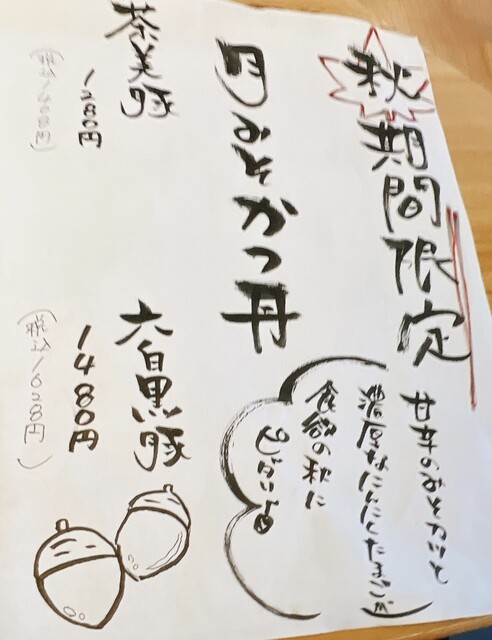 秋期間限定
甘辛のみそカツと
濃厚なにんにくたまごが
食欲の秋に
ピッタリよ
月みそかつ丼
茶美豚
1280円
(税込1408円)
六白黒豚
1480円
(税込1628円)